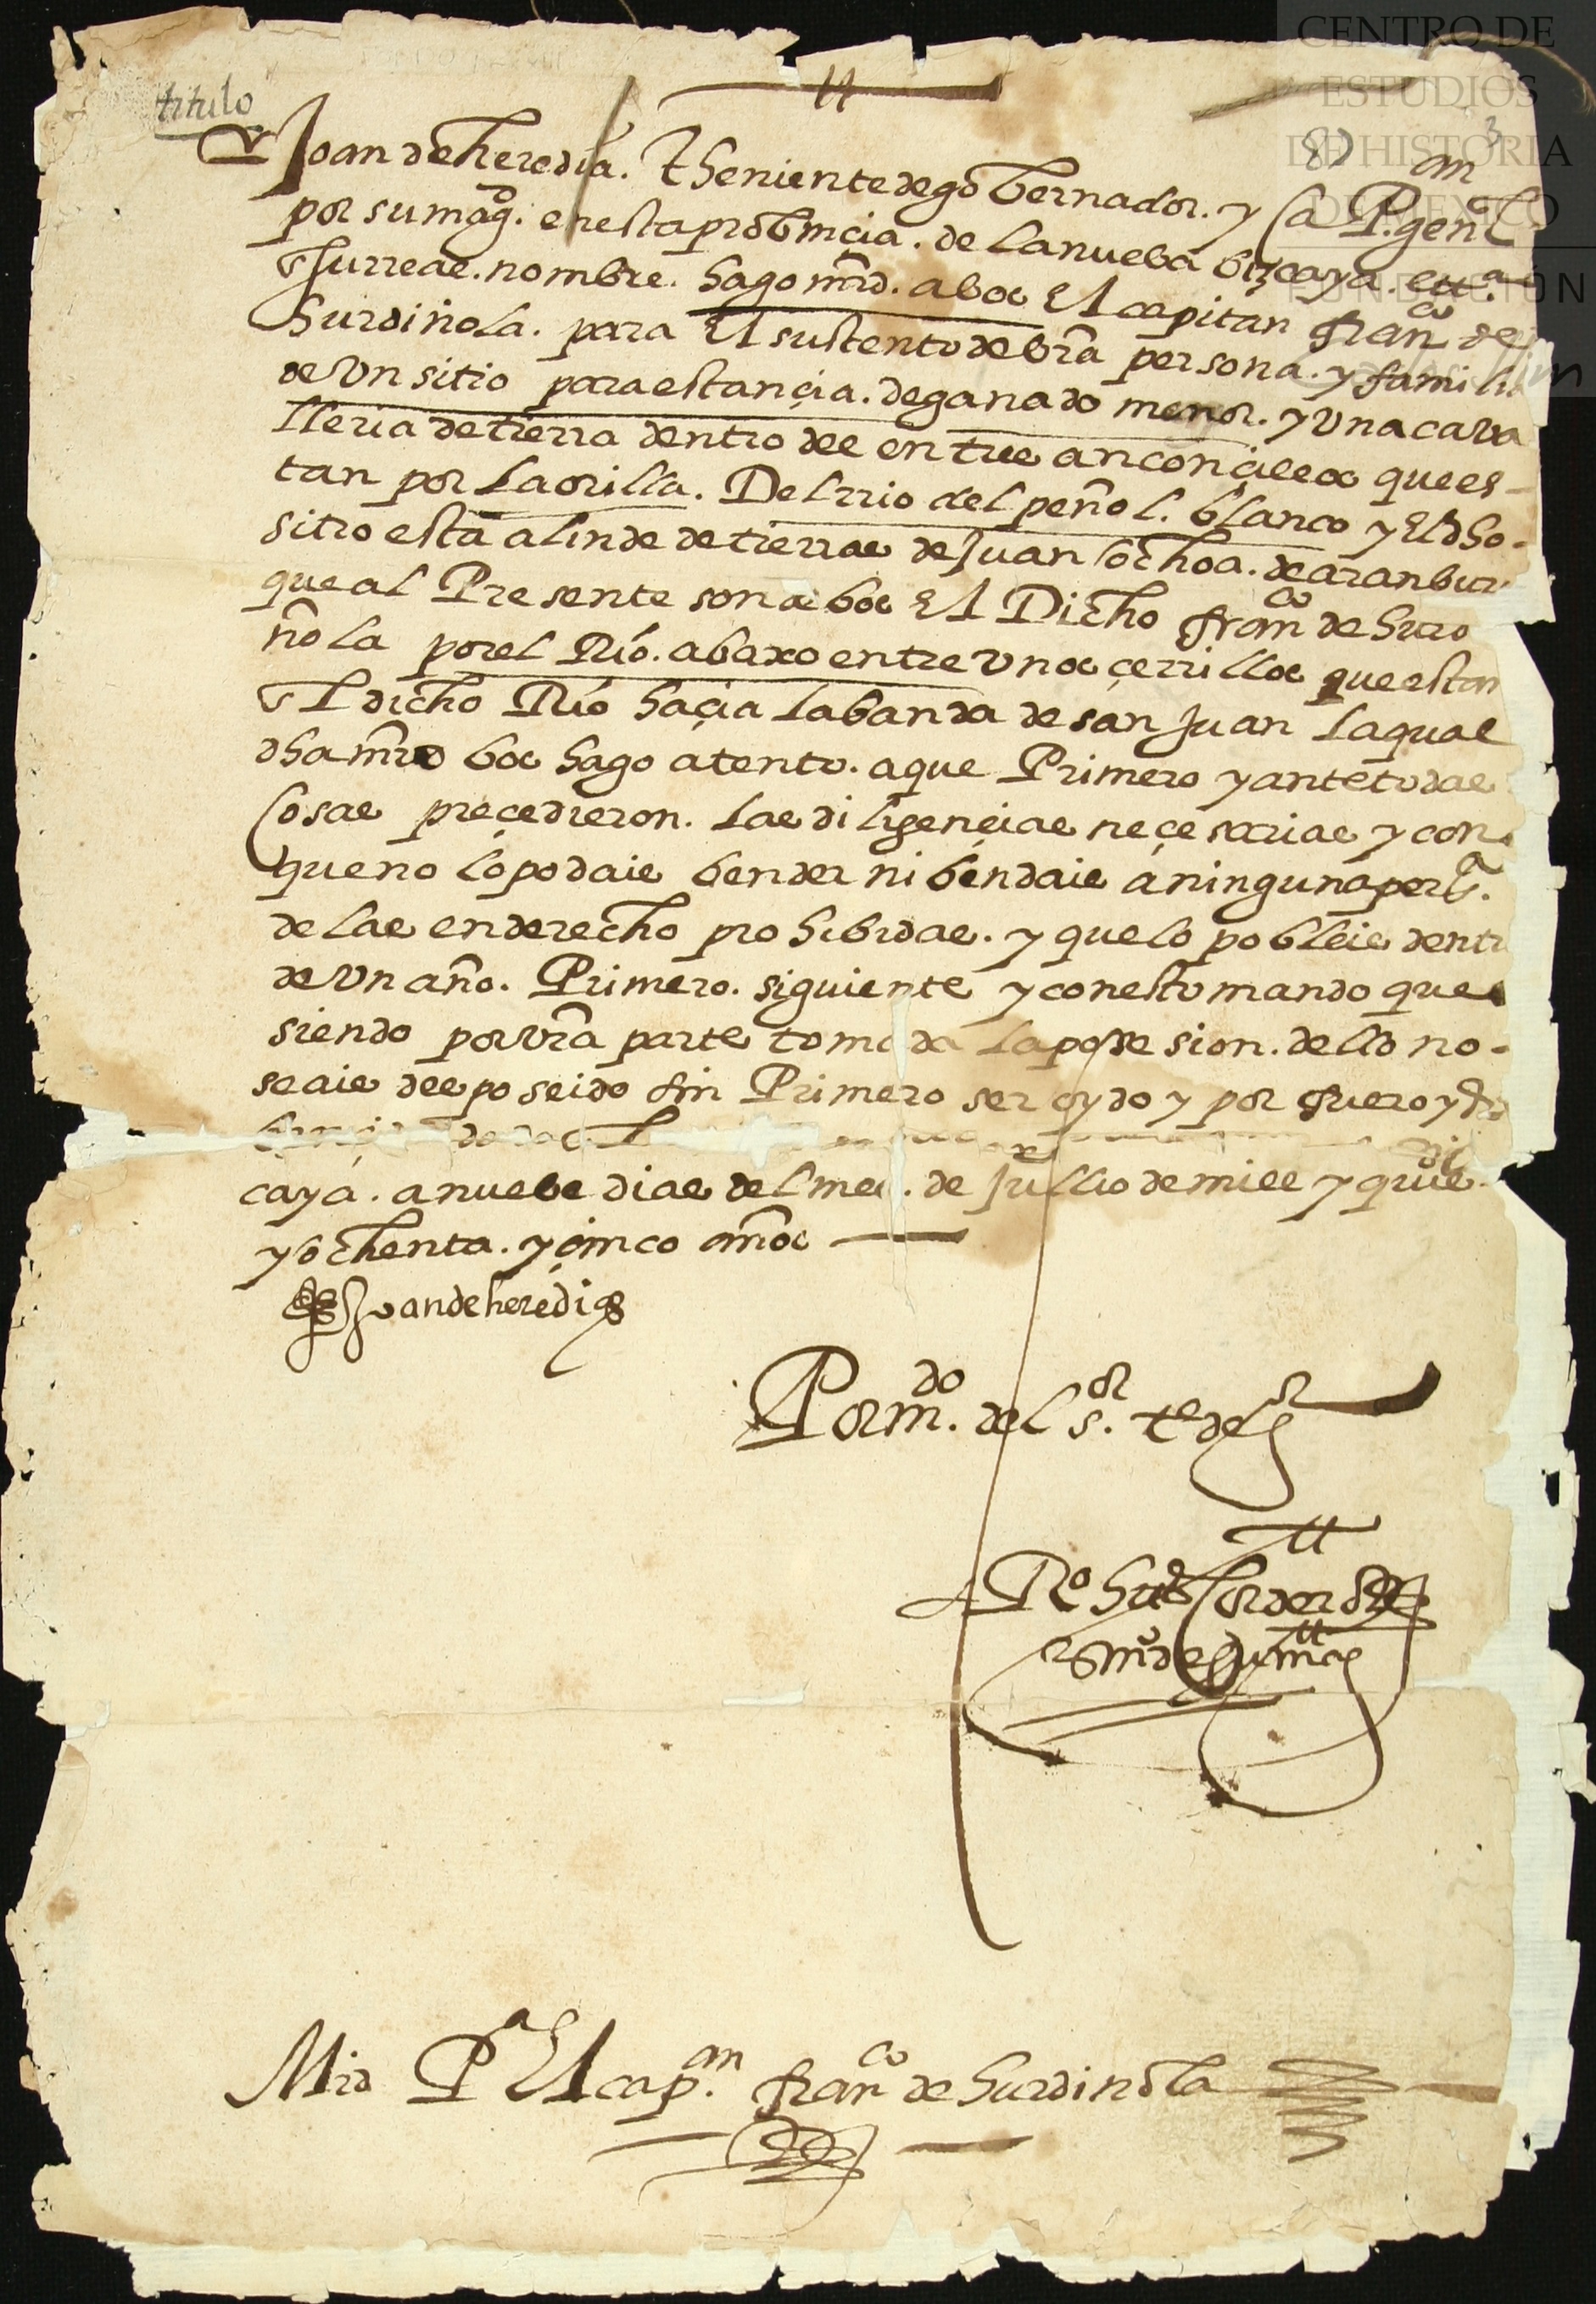 CENTRO DE
ESTUDIOS
DE HISTORIA
DE MÉXICO
FUNDACIÓN
titulo
3
Joan de heredia. theniente de gobernador. y Capan genl
por su magd. en esta probinçia. de la nueba bizcaya. en su
Rl nombre. hago mrd. a bos El capitan franco de
hurdiñola. para El sustento de bra persona. y familia
de Un sitio para estançia. de ganado menor. y una cava
lleria de tierra dentro del en tres anconçillos que es-
tan por la orilla. Del rrio del peñol. blanco y El dho.
sitio esta alinde de tierras de Juan ochoa. de aranbur
que al Presente son a bos El Dicho franco de hurdi
ñola por el Río. abaxo entre unos çerrillos que estan
El dicho Río haçia la banda de san Juan la qual
dha mrd bos hago atento. a que Primero y ante todas
Cosas preçedieron. las diligençias neçesarias y con
que no lo podais bender ni bendais a ninguna persa.
de las en derecho prohibidas. y que lo pobleis dentr
de Un año. Primero. siguiente y con esto mando que
siendo por vra parte tomada la posesion. dello no-
seais desposeido sin Primero ser oydo y por fuero y dro
caya. a nuebe dias del mes. de Jullio de mill y quis
y ochenta. y çinco años
Juan de heredia
Por mdo. del sor. te de gr
Ro hrs Cordero
esno de su magt
Mrd Pa El capan. franco de hurdinola